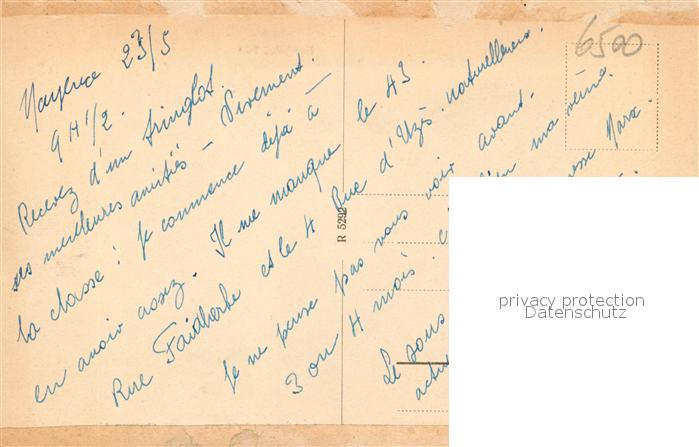 Mayence 23/5
9 H 1/2.
6500
Recevez d'un tringlot
ses meilleures amitiés - Vivement.
la classe ! je commence déjà à
en avoir assez. Il me manque le 43.
Rue Faidherbe et le 4 Rue d'Uzès. naturellement.
je ne pense pas vous voir avant.
3 ou 4 mois. ma veine.
Le sous
active
R 5292
privacy protection
Datenschutz